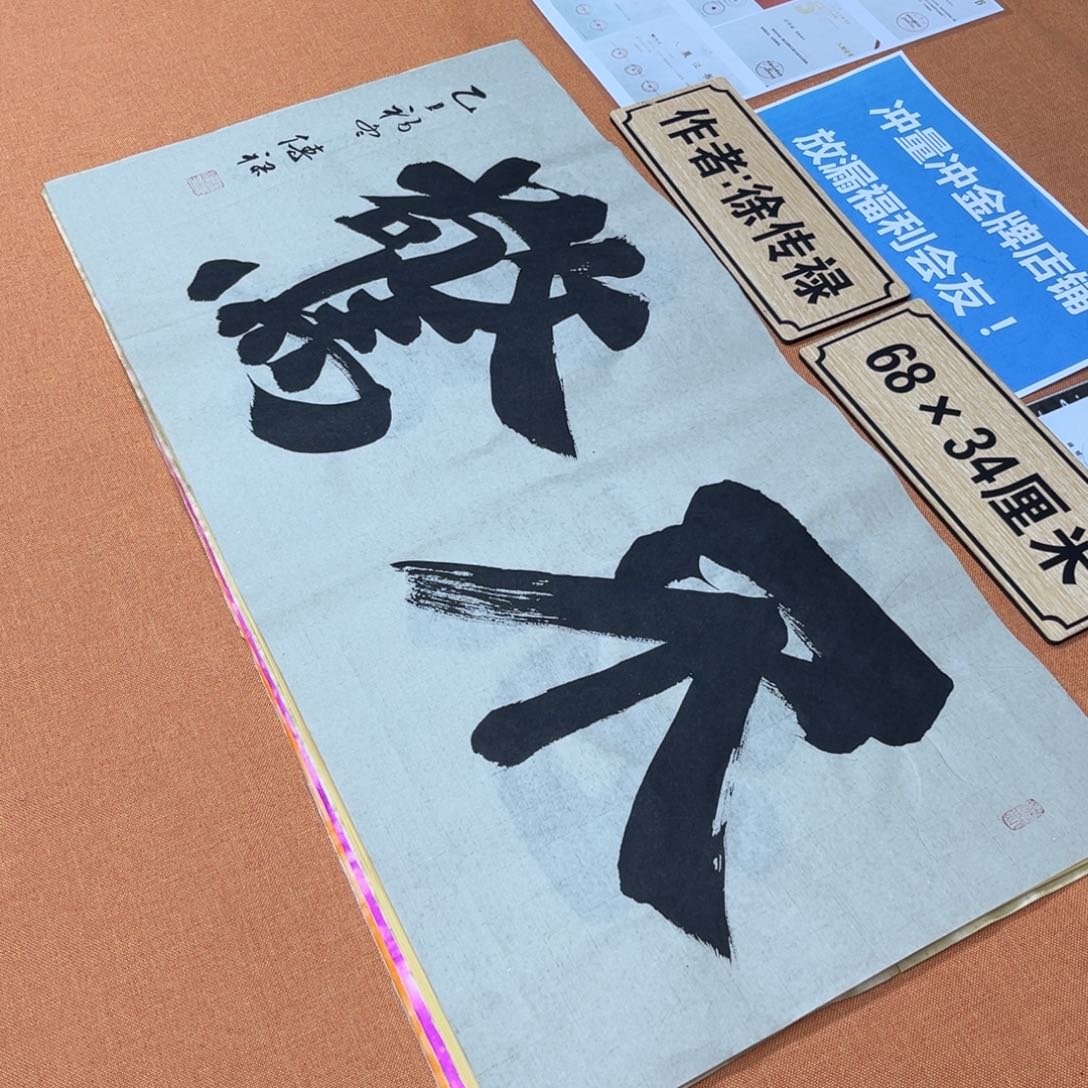 不驚
乙巳
傳禄
作者:徐传禄
68×34厘米
冲量冲金牌店铺
放漏福利会友！